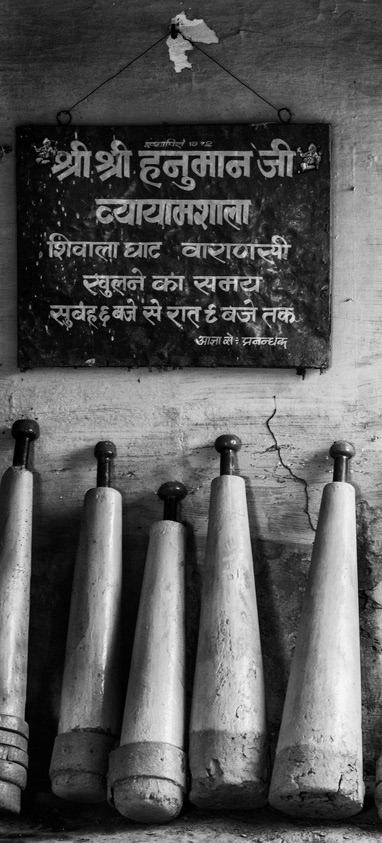 स्थापित १९४२
श्री श्री हनुमान जी
व्यायामशाला
शिवाला घाट वाराणसी
खुलने का समय
सुबह ६ बजे से रात ९ बजे तक
आज्ञा से : प्रबन्धक